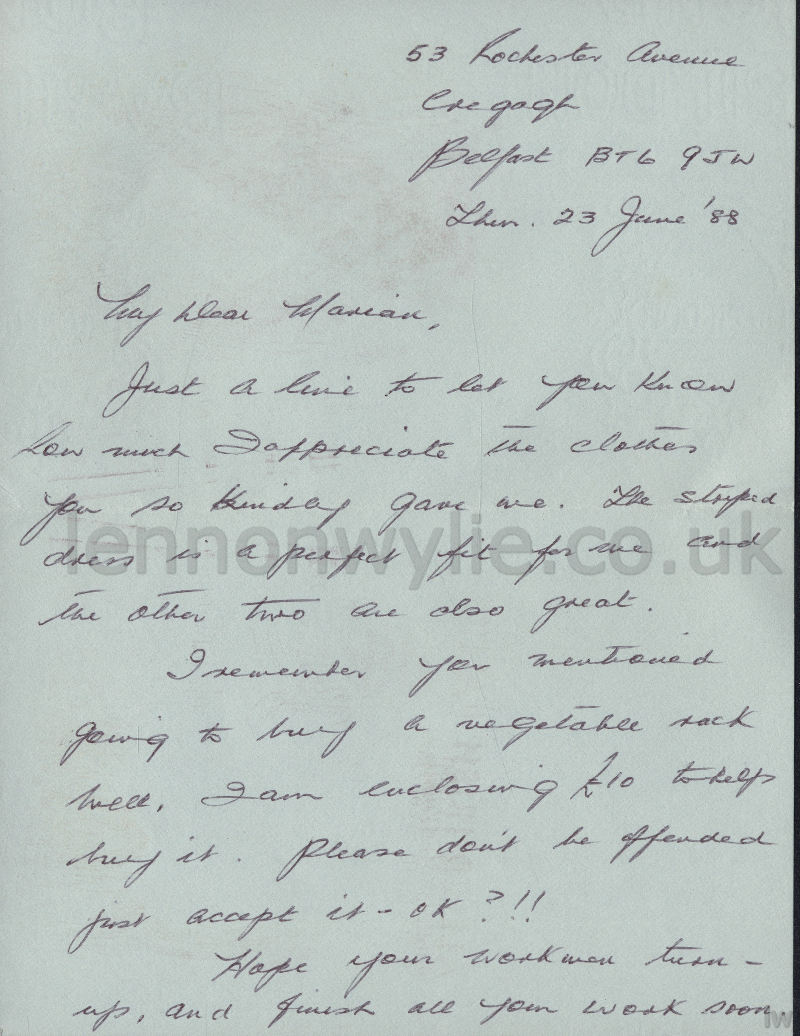 53 Rochester Avenue
Cregagh
Belfast BT6 9JW
Thur. 23 June '88
My dear Marian,
Just a line to let you know
how much I appreciate the clothes
you so kindly gave me. The striped
dress is a perfect fit for me and
the other two are also great.
I remember you mentioned
going to buy a vegetable rack
well, I am enclosing £10 to help
buy it. Please don't be offended
just accept it - OK ?!!
Hope your workmen turn-
up, and finish all your work soon
lennonwylie.co.uk
lw